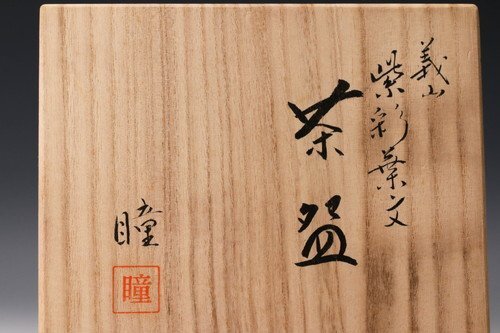 義山
紫彩葉文
茶盌
瞳
瞳